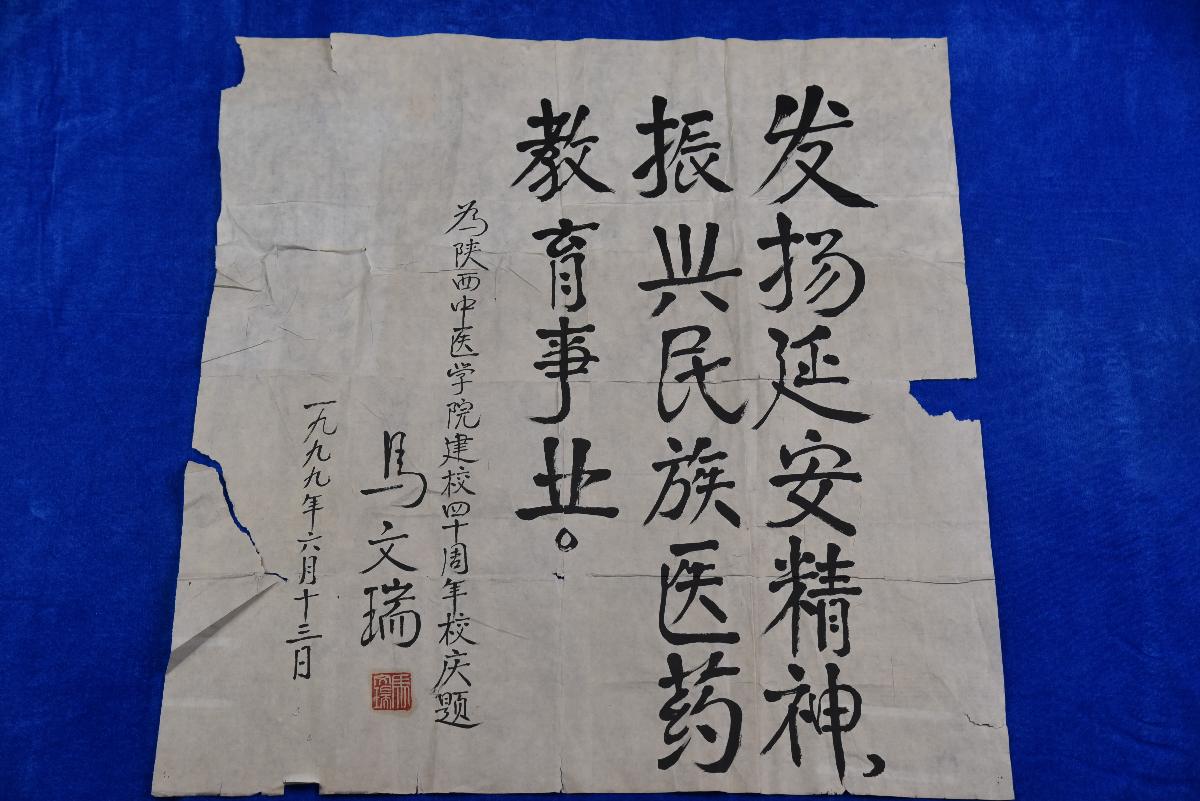 发扬延安精神、
振兴民族医药
教育事业。
为陕西中医学院建校四十周年校庆题
马文瑞
马文瑞
一九九九年六月十三日